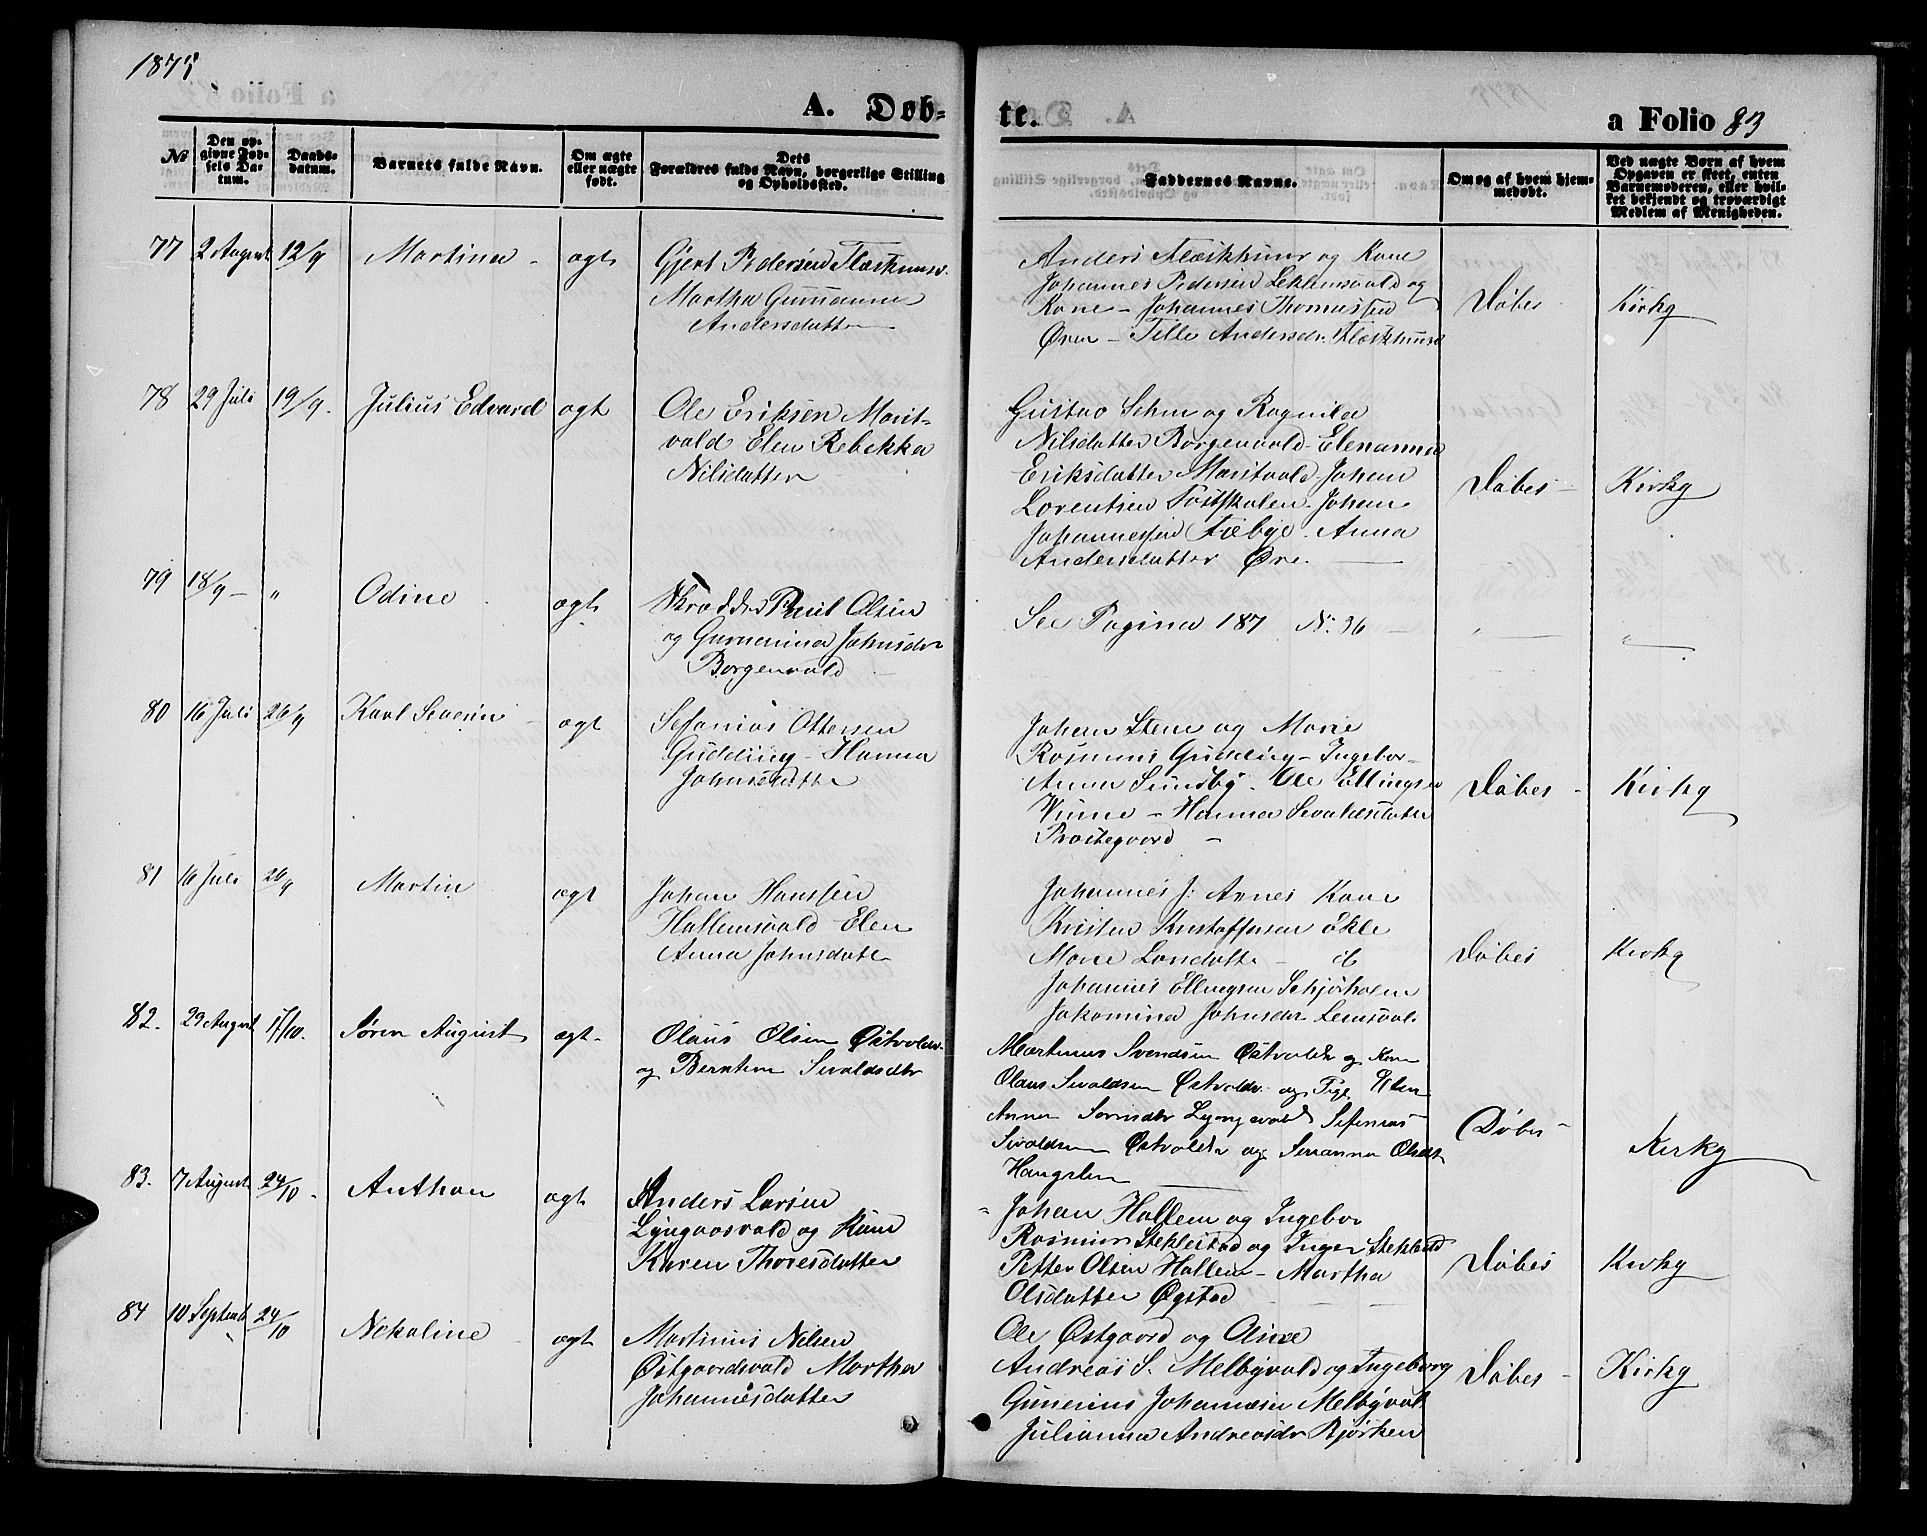 1875
A. Døb-
te.
a Folio 83
№
Den op-
givne Fød-
sels Da-
tum.
Daabs-
datum.
Barnets fulde Navn.
Om ægte
eller uægte
født.
Dets
Forældres fulde Navn, borgerlige Stilling
og Opholdssted.
Faddernes Navne.
Om og af hvem hjem-
medøbt.
Ved uægte Børn af hvem
Opgaven er skeet, enten
Barnemoderen, eller hvil-
ket bekjendt og troværdigt
Medlem af Menigheden.
77 2 August 12/9 Martina - ægte Gjert Pedersen
Martha Gurianna
Andersdatter
Anders og Kone
Johannes Pedersen og
Kone - Johannes Thomassen
Øren - Andersdr.
Døbes Kirky
78 29 Juli 19/9. Julius Edvard ægt Ole Eriksen Marit-
vald Elen Rebekka
Nilsdatter
Gustav og Ragnild
Nilsdatter Borgenvald - Elenanna
Eriksdatter Maritvald - Johan
Lorentsen - Johan
Johannessen Anna
Andersdatter Øre.
Døbes - Kirky
79 18/9 - " Odine ægte Skrædder Paul Olsen
og Johnsdr
Borgenvald
See Pagina 187 N: 36 - " "
80 16 Juli 26/9 Karl Severin - ægt Sefanias Ottersen
Gudding - Hanna
Johnsdatte
Johan Stene og Marie
Rasmus Gudding - Ingebor-
Anna Sundby - Ole Ellingsen
Vinne - Hanna Sivaldsdatter
Præstegaard -
Døbes - Kirky
81 16 Juli 26/9 Martin ægt Johan Hanssen
Hallemsvald Elen
Anna Johnsdate
Johannes J. Aunes Kone
Kristen Kristoffersen Økle
Marie Larsdatte - ib
Johannes Ellingsen
Jakomina Johnsdr
Døbes Kirky
82. 29 August 17/10. Søren August ægt. Olaus Olsen Østvoldv.
og Berntine Sivaldsdtr
Martinus Svendsen Østvoldv og Kone
Olaus Sivaldsen Østvoldv. og Pige Elen
Anna Sefenias
Sivaldsen Østvoldv og Olsdt
Haugslien
Døbes - Kirky
83. 7 August 24/10. Anthon ægt Anders Larsen
Lyngaasvald og Kone
Karen Thoresdatter
Johan Hallem og Ingebor
Rasmus Steklestad og Inger Steklestd
Petter Olsen Hallem - Martha
Olsdatter Øgstad
Døbes Kirky
84 10 Septemb 24/10 Nekoline ægt Martinus Nilsen
Østgaardsvald Martha
Johannesdatter
Ole Østgaard og Oline
Andreas S. Melbyvald og Ingeborg
Gunerius Johannesen Melbyval
Julianna Andreasdr Bjørken
Døbes - Kirky